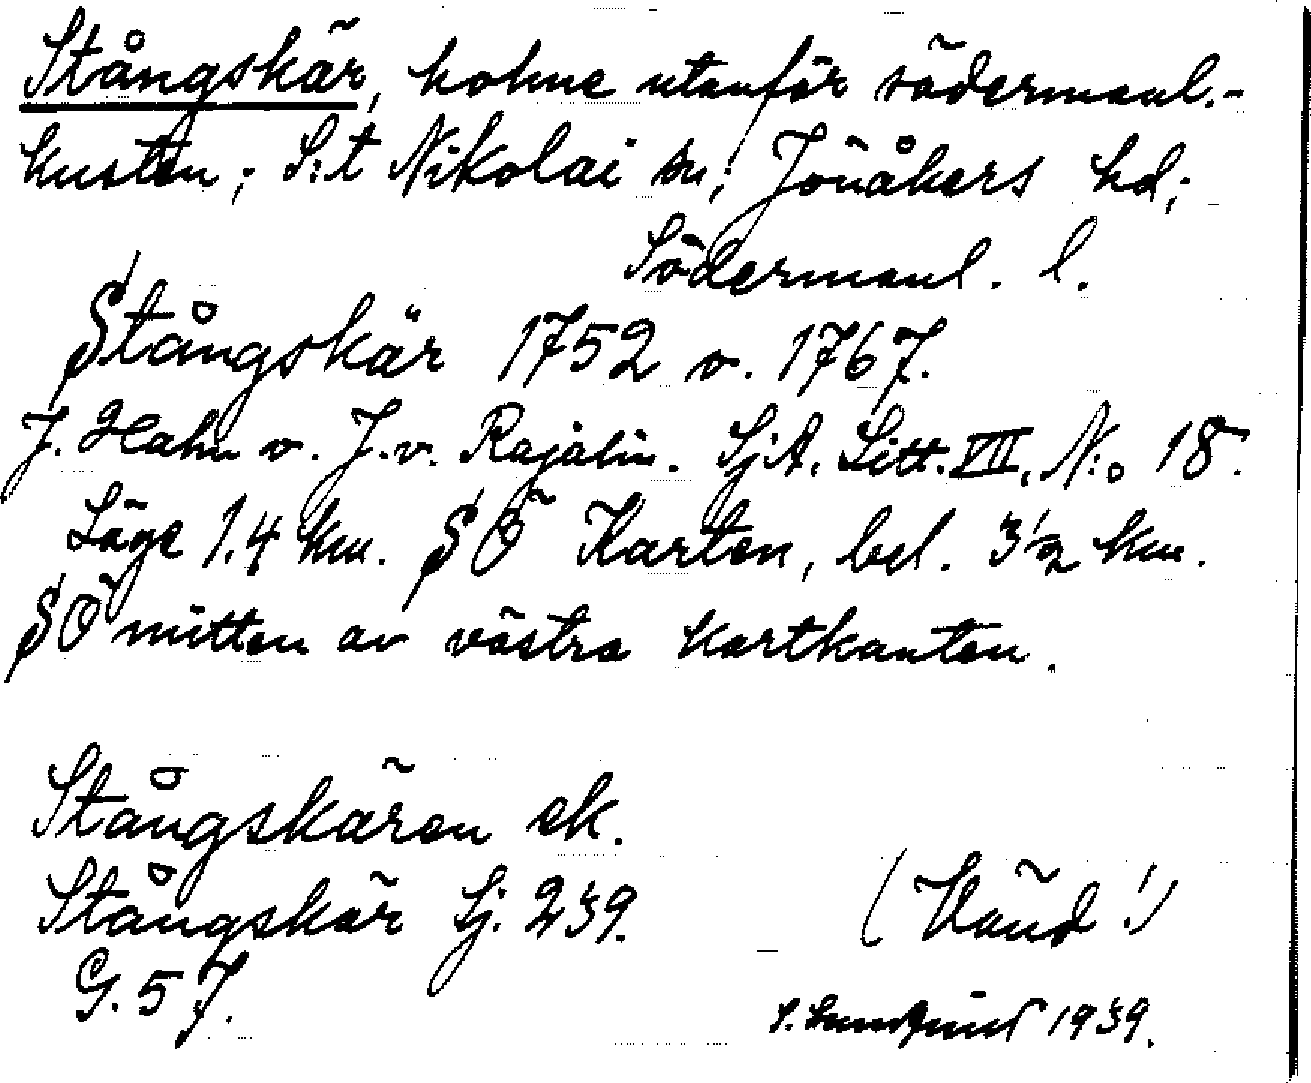 Stångskär, holme utanför södermanl.-
kusten; S:t Nikolai sn; Jönåkers hd;
Södermanl. l.
Stångskär 1752 o. 1767.
J. Hahn o. J. v. Rajalin. SjA. Litt. VII. N:o 18.
Läge 1,4 km. SÖ Karten, bel. 3½ km.
SÖ mitten av västra kartkanten.
Stångskären ek.
Stångskär Sj. 239.
(Vänd!)
G. 57.
1939.